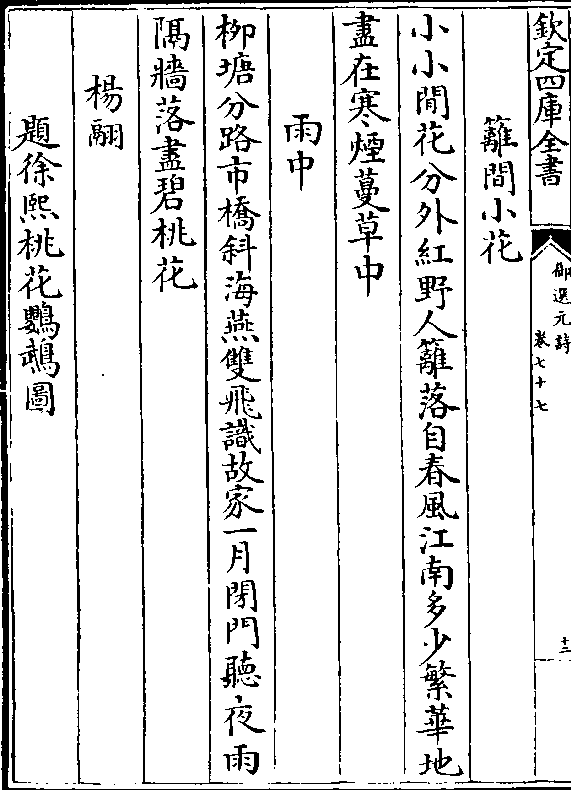 欽定四庫全書
御選元詩
卷七十七
十三
籬間小花
小小閒花分外紅野人籬落自春風江南多少繁華地
盡在寒煙蔓草中
雨中
柳塘分路市橋斜海燕雙飛識故家一月閉門聽夜雨
隔牆落盡碧桃花
楊翮
題徐熙桃花鸚鵡圖